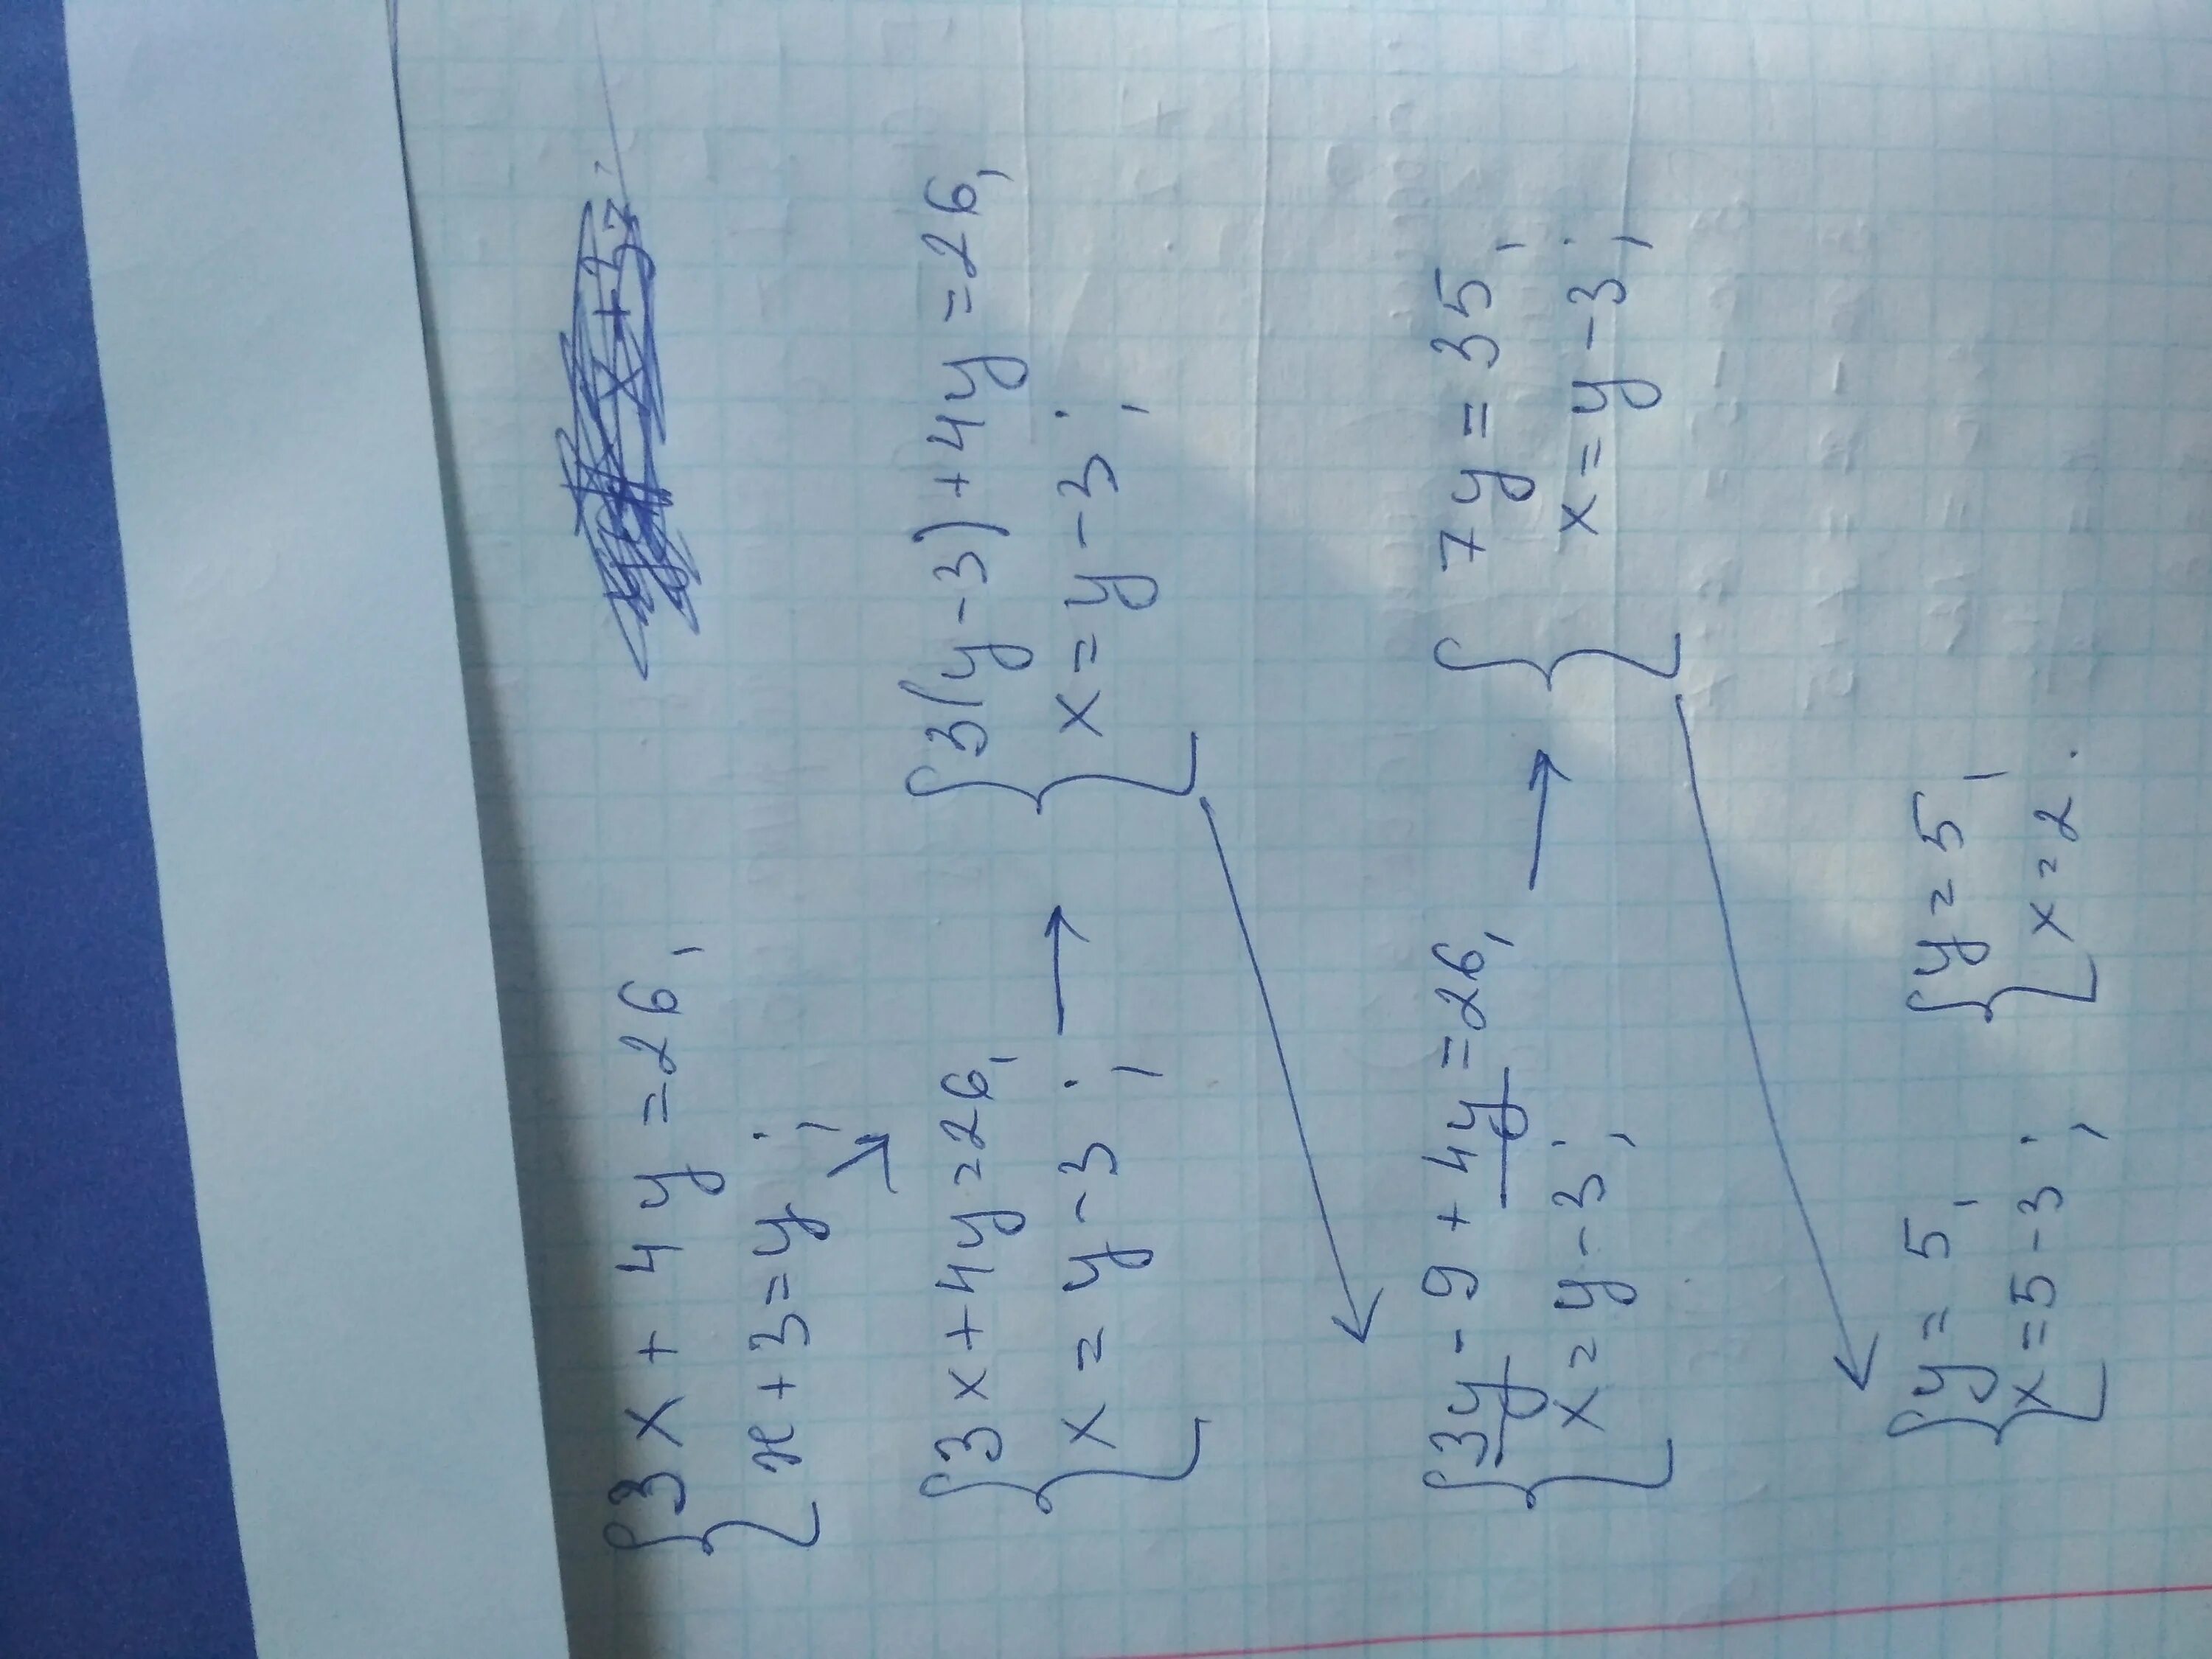 {3x + 4y = 26,
x + 3 = y;
{3x + 4y = 26,
x = y - 3;
→
{3(y - 3) + 4y = 26,
x = y - 3;
{3y - 9 + 4y = 26,
x = y - 3;
→
{7y = 35,
x = y - 3;
{y = 5,
x = 5 - 3;
{y = 5,
x = 2.